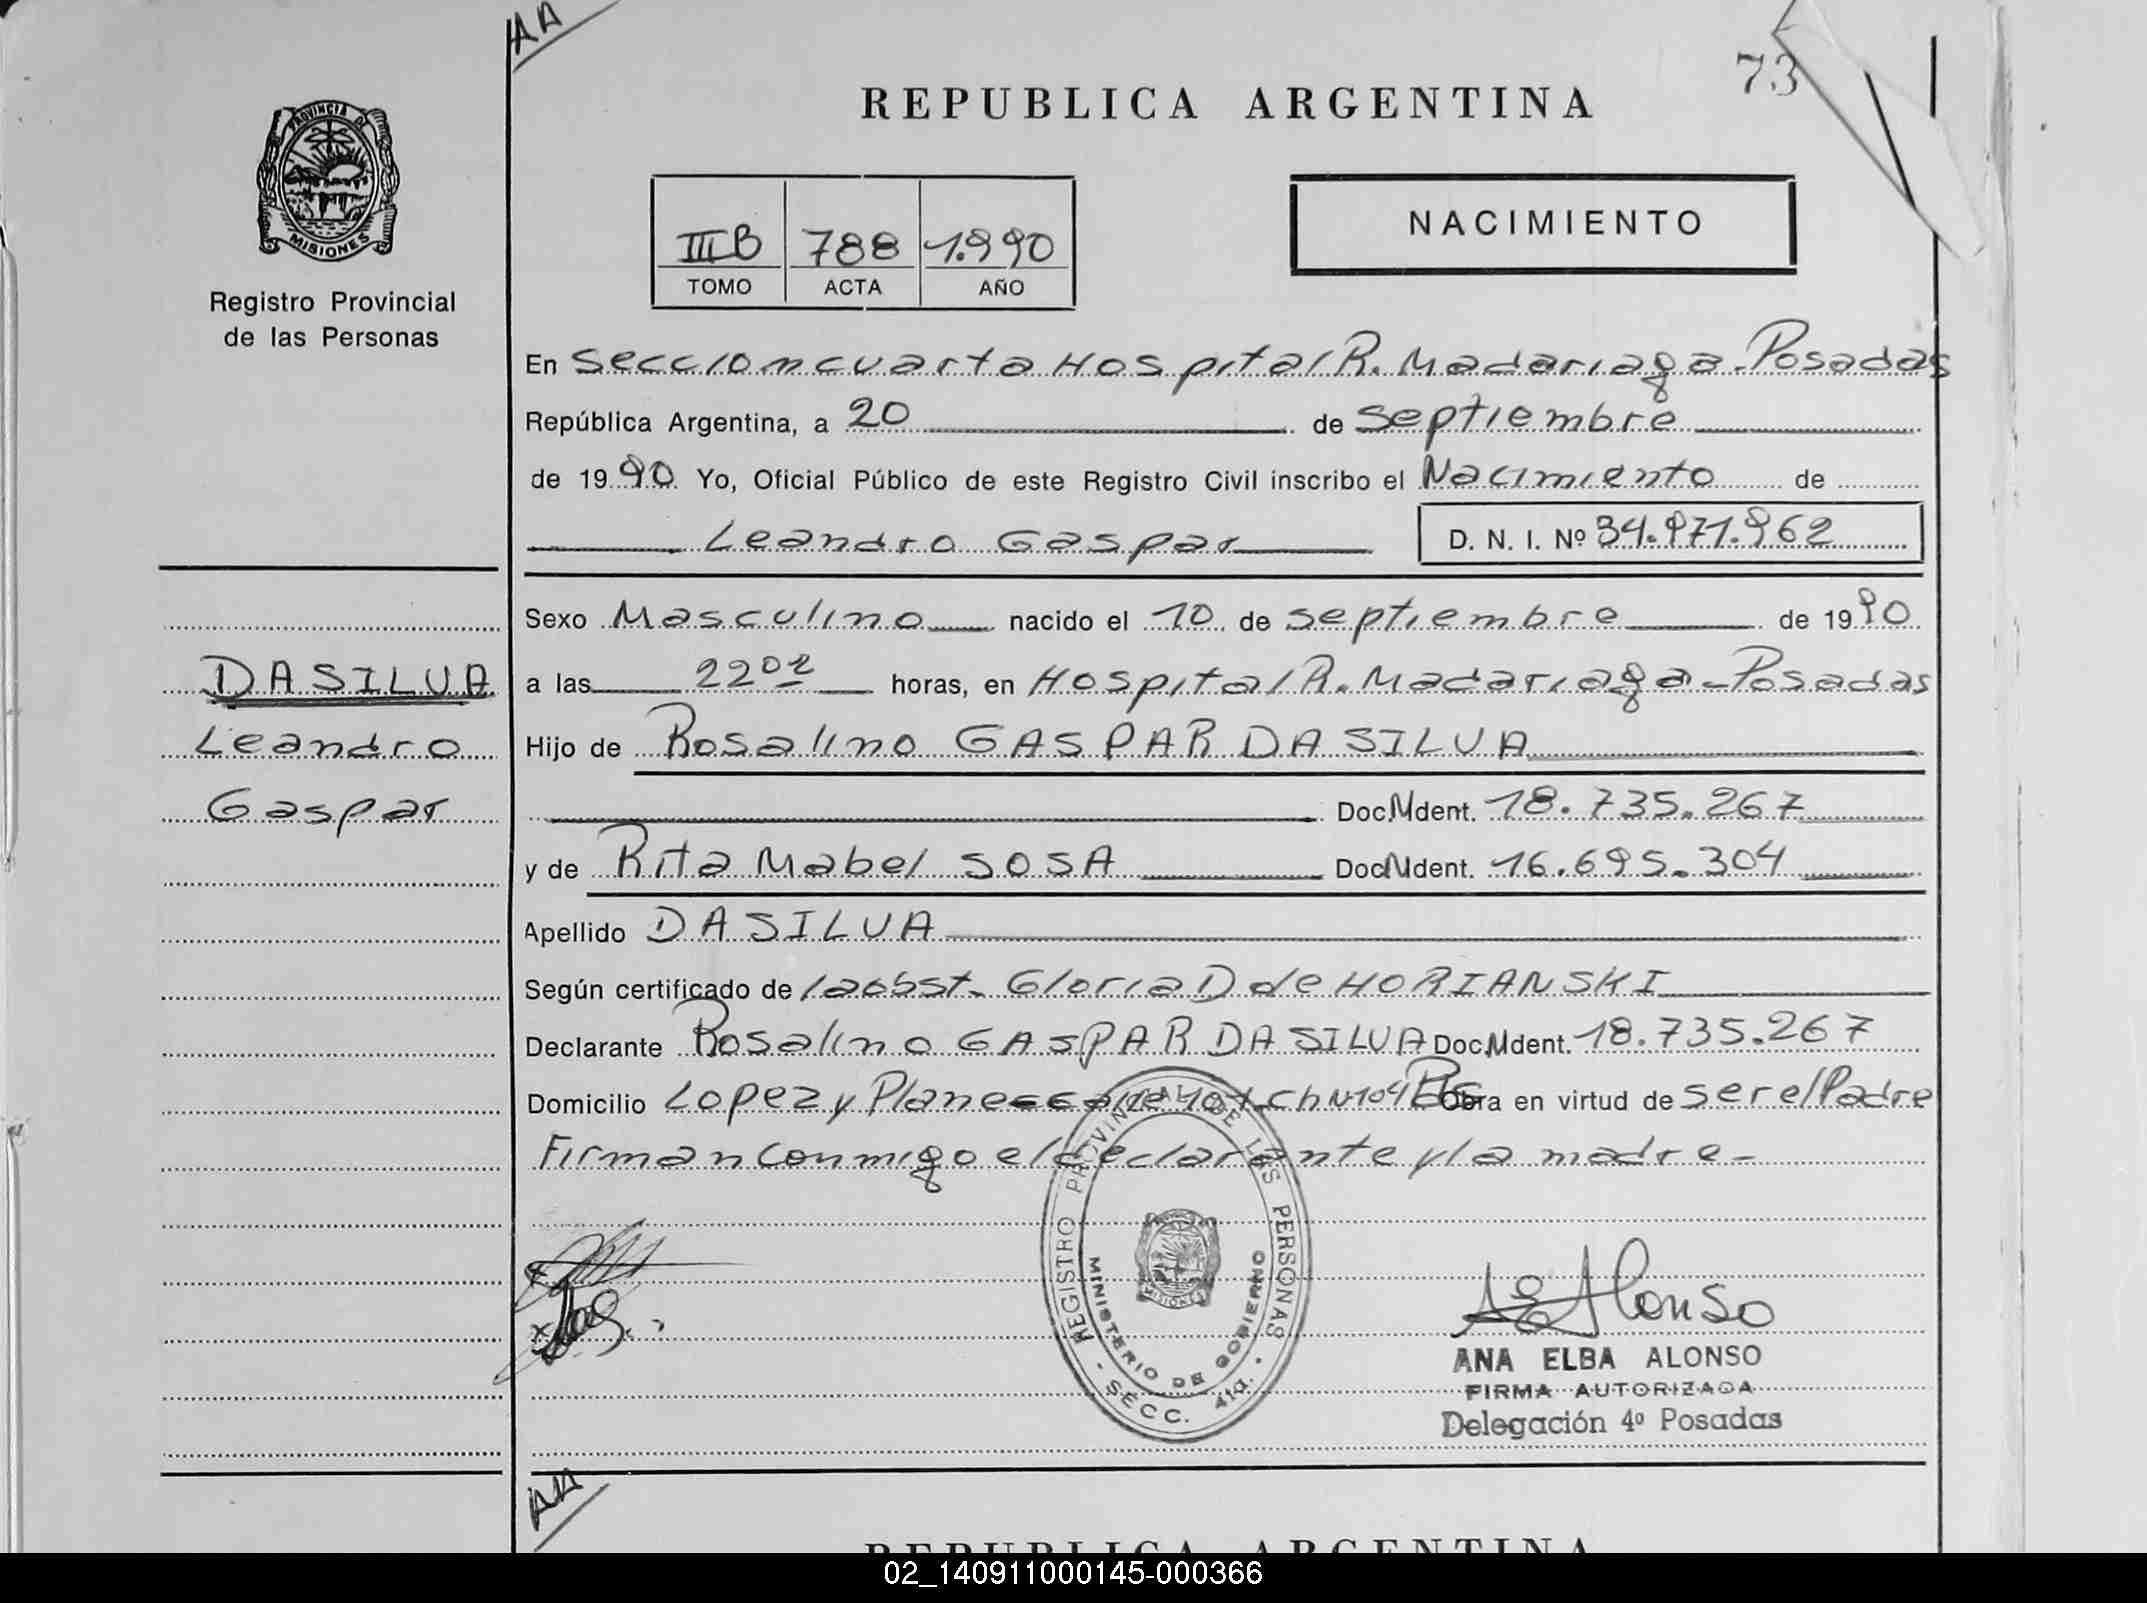 AA
73
REPUBLICA ARGENTINA
PROVINCIA D
MISIONES
Registro Provincial
de las Personas
III B 788 1.990
TOMO ACTA AÑO
NACIMIENTO
En Seccion cuarta Hospital R. Madariaga - Posadas
República Argentina, a 20 de Septiembre
de 1990 Yo, Oficial Público de este Registro Civil inscribo el Nacimiento de
Leandro Gaspar D. N. I. Nº 34.971.962
Sexo Masculino nacido el 10 de Septiembre de 1990
a las 22 02 horas, en Hospital R. Madariaga - Posadas
DA SILVA
Leandro
Gaspar
Hijo de Rosalino GASPAR DA SILVA
Doc. Ident. 18.735.267
y de Rita Mabel SOSA Doc. Ident. 16.695.304
Apellido DA SILVA
Según certificado de la obst. Gloria D de HORIANSKI
Declarante Rosalino GASPAR DA SILVA Doc. Ident. 18.735.267
Domicilio Lopez y Planes Ch Nº 104 Pos Obra en virtud de ser el Padre
Firman conmigo el declarante y la madre -
REGISTRO PROVINCIAL DE LAS PERSONAS
MINISTERIO DE GOBIERNO
MISIONES
- SECC. 4ta. -
Alonso
ANA ELBA ALONSO
FIRMA AUTORIZADA
Delegación 4º Posadas
AA
REPUBLICA ARGENTINA
02_140911000145-000366